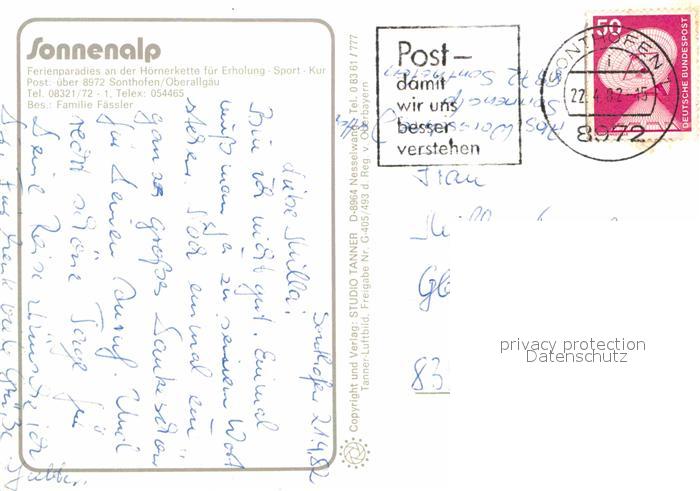 Sonnenalp
Ferienparadies an der Hörnerkette für Erholung · Sport · Kur
Post: über 8972 Sonthofen/Oberallgäu
Tel. 08321/72 - 1, Telex: 054465
Bes.: Familie Fässler
Sonthofen 21.4.82
Liebe Milla!
Bin ich nicht gut. Einmal
muß man ja zu seinem Wort
stehen. Noch einmal ein
ganz großes Dankeschön
für Deinen Anruf. Und
recht schöne Tage für
Deine Reise wünsche ich
Dir. Für heute viele Grüße
Copyright und Verlag: STUDIO TANNER D-8964 Nesselwang · Tel. 0 83 61 / 777
Tanner-Luftbild. Freigabe Nr. G-405/493 d. Reg. v. Oberbayern
Post–
damit
wir uns
besser
verstehen
Abs.
Sonnenalp
8972 Sonthofen
SONTHOFEN 1
i
22.4.82-15
8972
50
DEUTSCHE BUNDESPOST
Frau
83
privacy protection
Datenschutz